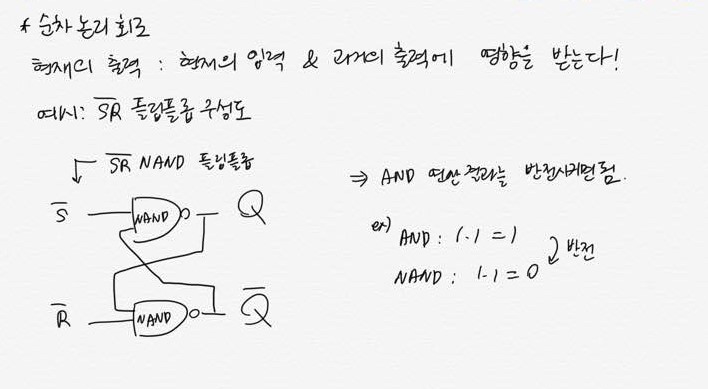 * 순차 논리 회로
현재의 출력 : 현재의 입력 & 과거의 출력에 영향을 받는다!
예시: S̅R̅ 플립플롭 구성도
S̅R̅ NAND 플립플롭
S̅ NAND Q
R̅ NAND Q̅
⇒ AND 연산 결과를 반전시키면 됨.
ex) AND : 1·1 = 1
NAND : 1·1 = 0
반전